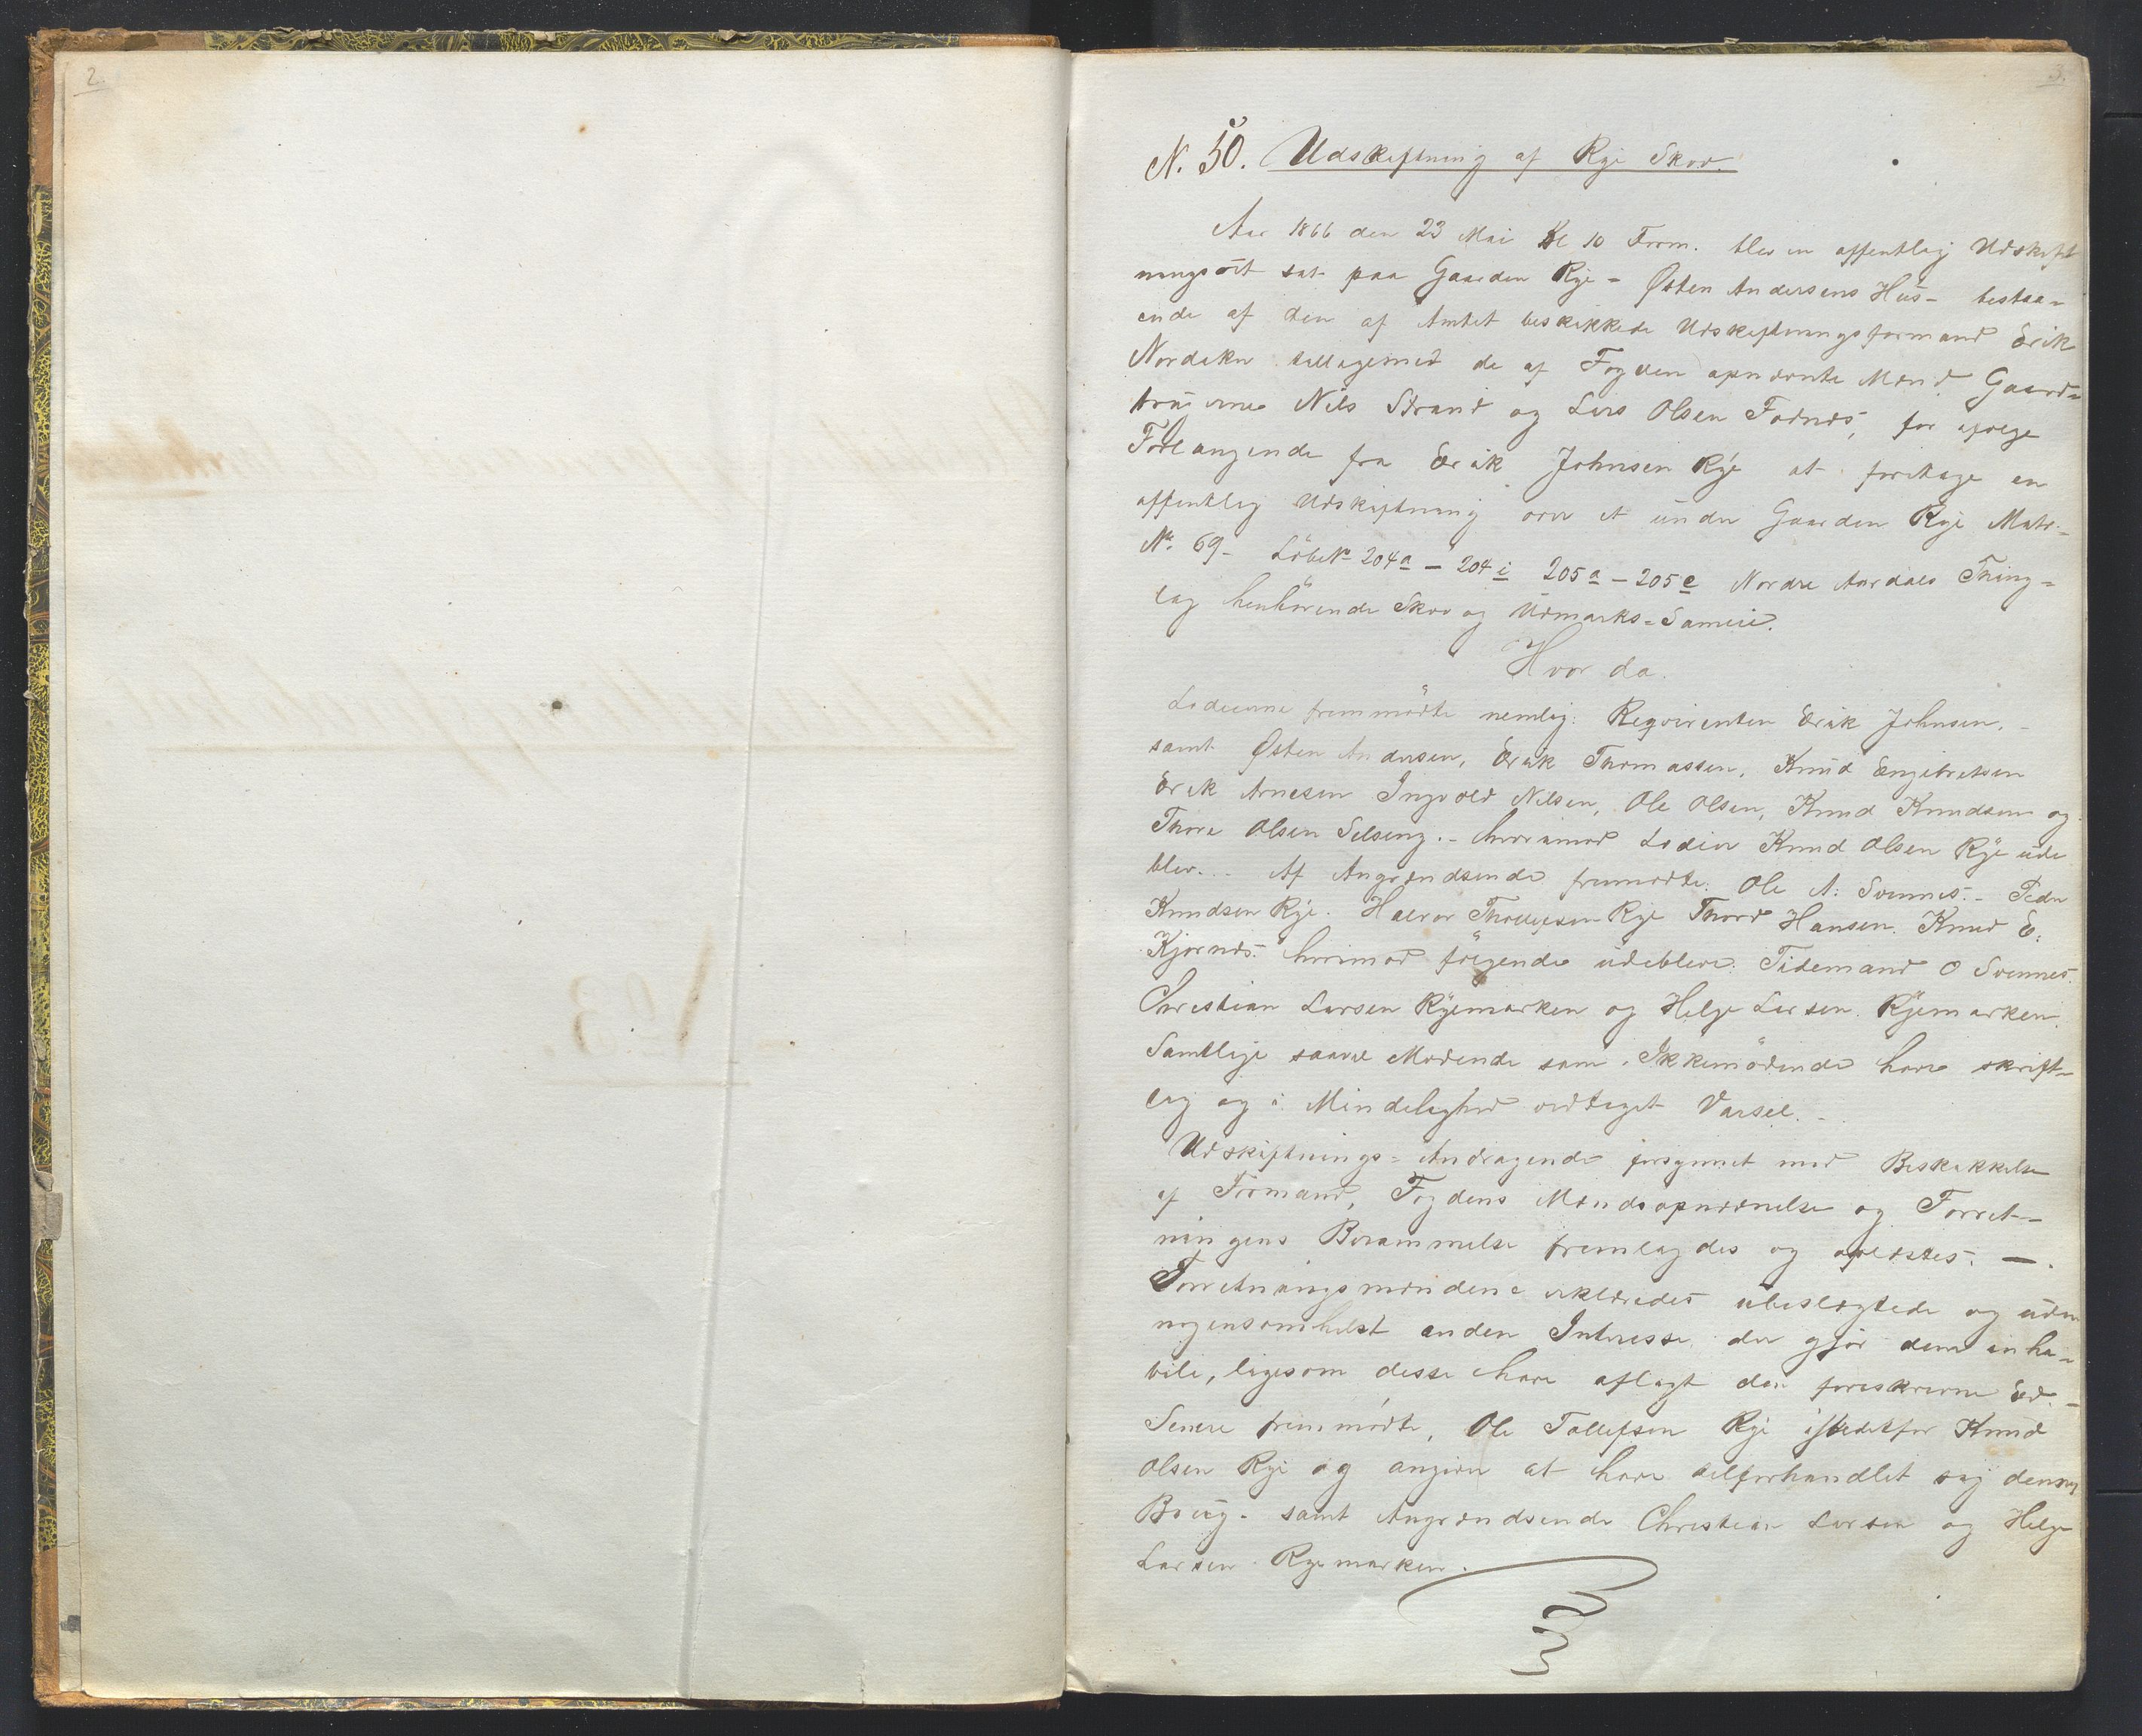 2.
3.
N. 50. Udskiftning af Rye Skov.
Aar 1866 den 23 Mai Kl 10 Form. blev en offentlig Udskift
ningsret sat paa Gaarden Rye - Østen Andersens Hus - bestaa=
ende af den af Amtet beskikkede Udskiftningsformand Erik
Nordaker tilligemed de af Fogden opnævnte Mænd Gaard=
bruerne Nils Strand og Lars Olsen Fodnæs, for ifølge
Forlangende fra Erik Johnsen Rye at foretage en
offentlig Udskiftning over et under Gaarden Rye Matr.
No. 69 - Löbe No 204a - 204i 205a - 205e Nordre Aurdals Thing=
lag henhörende Skov og Udmarks=Sameie.
Hvor da.
Lodeierne fremmödte nemlig: Reqvirenten Erik Johnsen, -
samt Østen Andersen, Erik Thomassen, Knud Engebretsen
Erik Arnesen Ingvold Nilsen, Ole Olsen, Knud Knudsen og
Thore Olsen Selseng. - hvorimod Lodeier Knud Olsen Rye ude
blev. - Af Angrændsende fremmödte: Ole A: Svennes. - Peder
Knudsen Rye. Halvor Thollefsen Rye Thord Hansen. Knud E:
Kjörnæs. hvorimod fölgende udebleve: Tidemand O Svennes.
Christian Larsen Ryemarken og Helge Larsen Ryemarken.
Samtlige saavel Mödende som Ikkemödende have skrift=
lig og i Mindelighed vedtaget Varsel. -
Udskiftnings=Andragende forsynet med Beskikkelse
af Formand, Fogdens Mændsopnævnelse og Forret-
ningens Berammelse fremlagdes og oplæstes. -.
Forretningsmændene erklæredes ubeslægtede og uden
nogensomhelst anden Interesse, der gjör dem inha=
bile, ligesom disse have aflagt den foreskrevne Ed. -
Senere fremmödte, Ole Tollefsen Rye istedetfor Knud
Olsen Rye og angiver at have tilforhandlet sig dennes
Brug - samt Angrændsende Christian Larsen og Helge
Larsen Ryemarken.